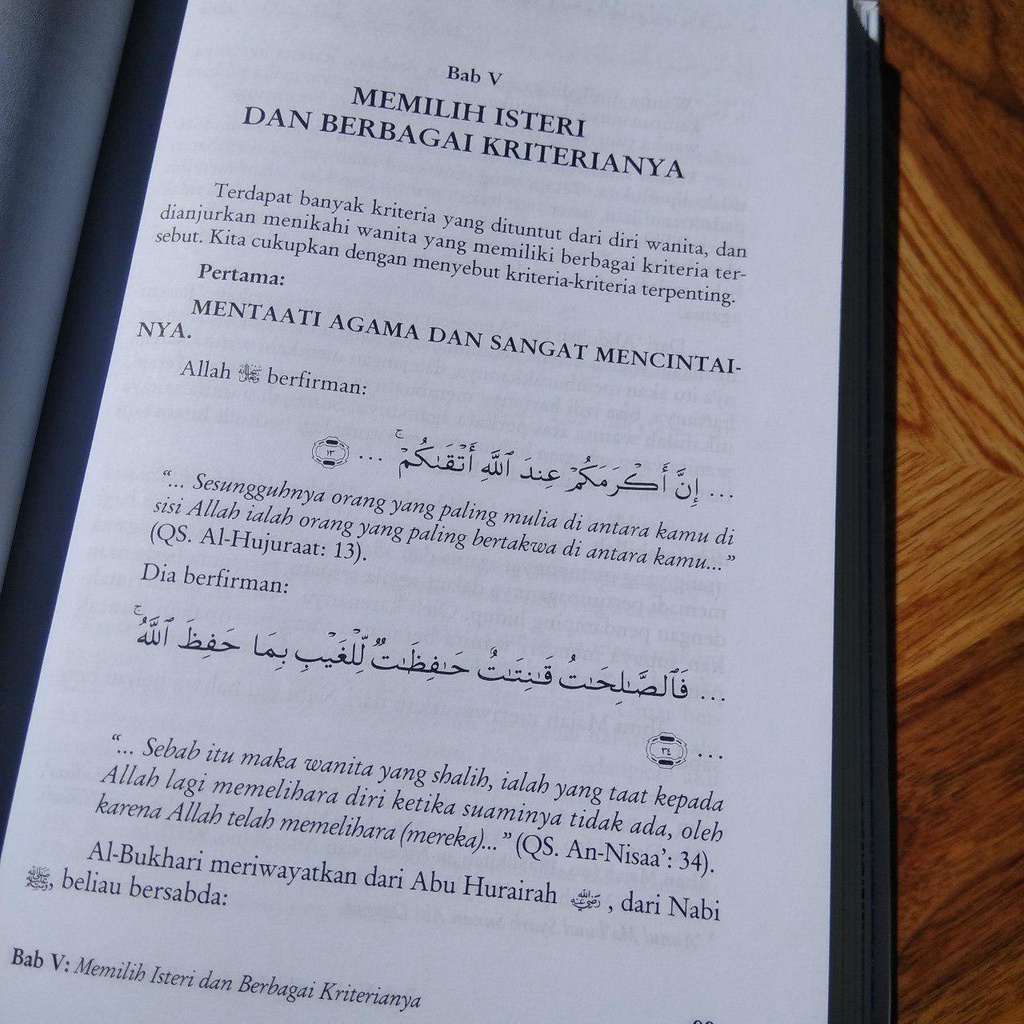 Bab V
MEMILIH ISTERI
DAN BERBAGAI KRITERIANYA
Terdapat banyak kriteria yang dituntut dari diri wanita, dan
dianjurkan menikahi wanita yang memiliki berbagai kriteria ter-
sebut. Kita cukupkan dengan menyebut kriteria-kriteria terpenting.
Pertama:
MENTAATI AGAMA DAN SANGAT MENCINTAI-
NYA.
Allah ﷻ berfirman:
... إِنَّ أَكْرَمَكُمْ عِندَ ٱللَّهِ أَتْقَىٰكُمْ ۚ ... ١٣
“... Sesungguhnya orang yang paling mulia di antara kamu di
sisi Allah ialah orang yang paling bertakwa di antara kamu...”
(QS. Al-Hujuraat: 13).
Dia berfirman:
... فَٱلصَّـٰلِحَـٰتُ قَـٰنِتَـٰتٌ حَـٰفِظَـٰتٌ لِّلْغَيْبِ بِمَا حَفِظَ ٱللَّهُ ۚ
... ٣٤
“... Sebab itu maka wanita yang shalih, ialah yang taat kepada
Allah lagi memelihara diri ketika suaminya tidak ada, oleh
karena Allah telah memelihara (mereka)...” (QS. An-Nisaa’: 34).
Al-Bukhari meriwayatkan dari Abu Hurairah رضي الله عنه , dari Nabi
ﷺ, beliau bersabda:
Bab V: Memilih Isteri dan Berbagai Kriterianya